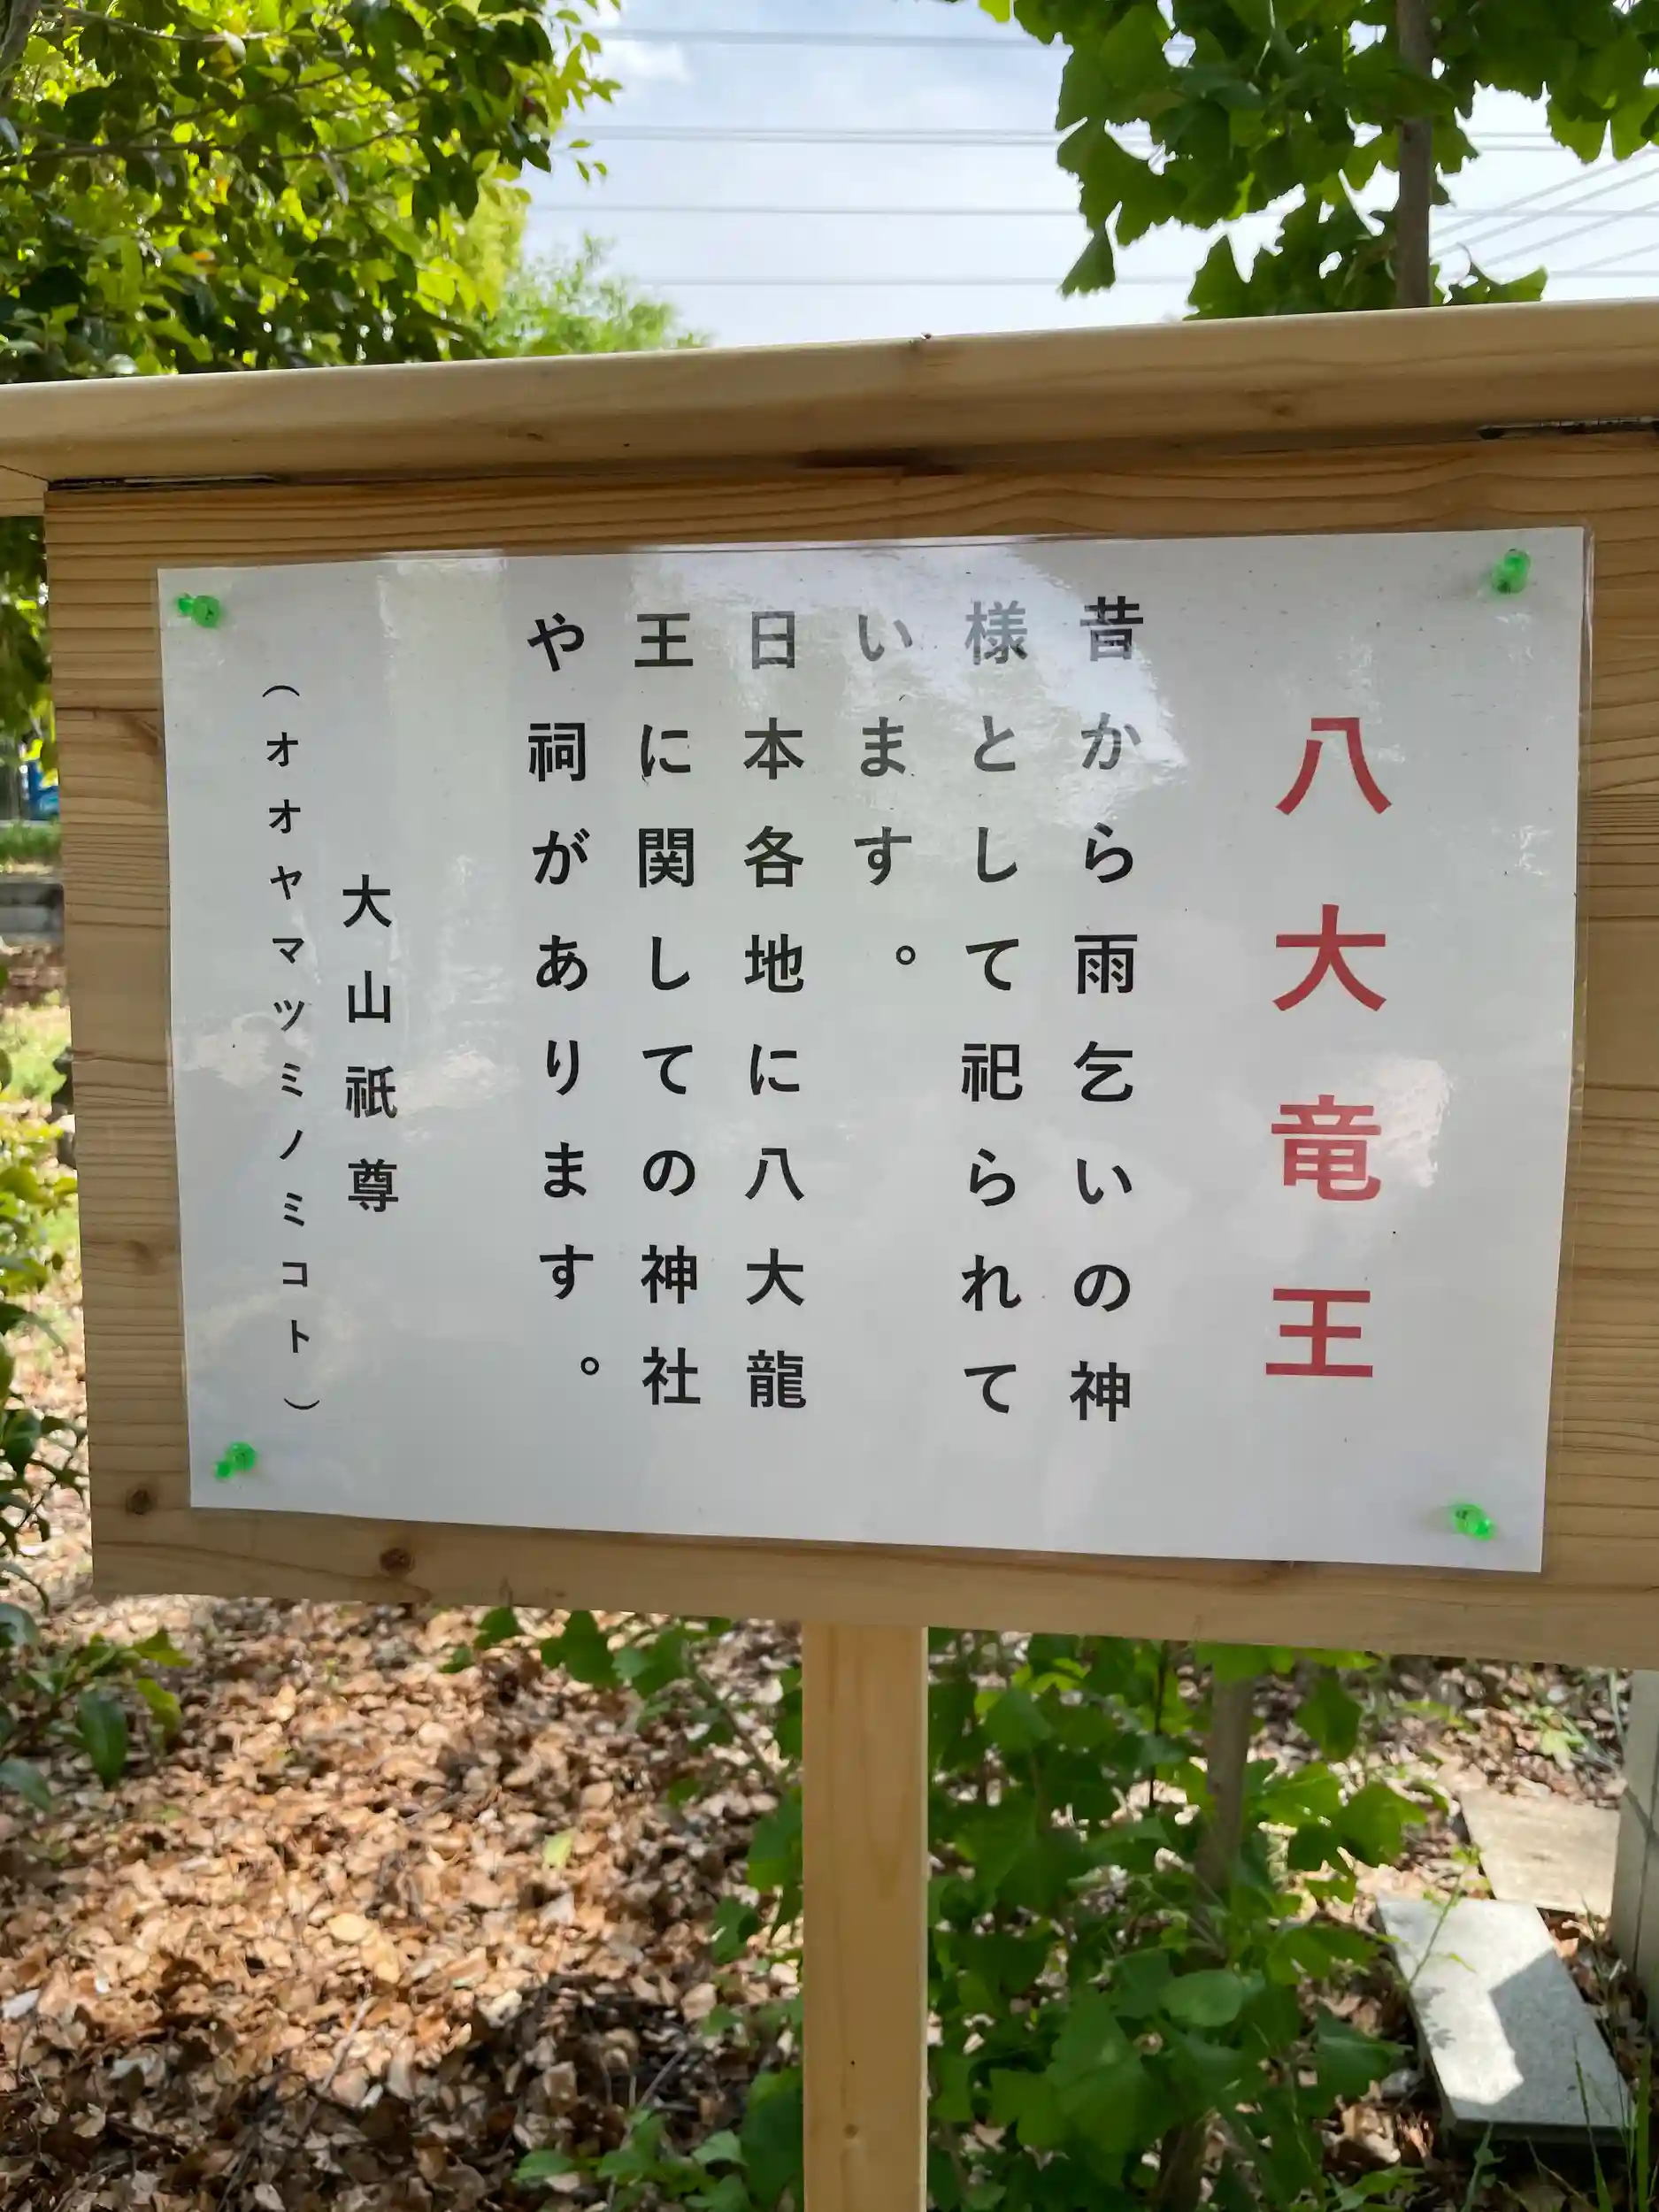 八大竜王
昔から雨乞いの神
様として祀られて
います。
日本各地に八大龍
王に関しての神社
や祠があります。
大山祇尊
（オオヤマツミノミコト）